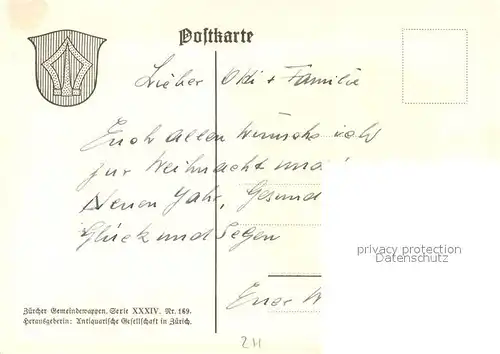 Postkarte
Lieber Odi + Familie
Euch allen wünsche ich
zur Weihnacht und
Neuen Jahr, Gesund
Glück und Segen
privacy protection
Datenschutz
Euer
Zürcher Gemeindewappen. Serie XXXIV. Nr. 169.
Herausgeberin: Antiquarische Gesellschaft in Zürich.
ZH